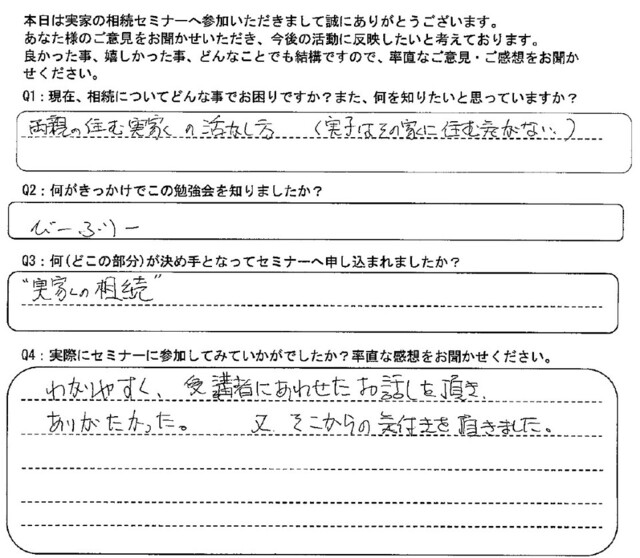 本日は実家の相続セミナーへ参加いただきまして誠にありがとうございます。
あなた様のご意見をお聞かせいただき、今後の活動に反映したいと考えております。
良かった事、嬉しかった事、どんなことでも結構ですので、率直なご意見・ご感想をお聞か
せください。
Q1：現在、相続についてどんな事でお困りですか？また、何を知りたいと思っていますか？
両親の住む実家の活かし方 （実子はその家に住む気がない．）
Q2：何がきっかけでこの勉強会を知りましたか？
びーふりー
Q3：何(どこの部分)が決め手となってセミナーへ申し込まれましたか？
“実家の相続”
Q4：実際にセミナーに参加してみていかがでしたか？率直な感想をお聞かせください。
わかりやすく、受講者にあわせたお話しを頂き、
ありがたかった。 又、そこからの気付きを頂きました。